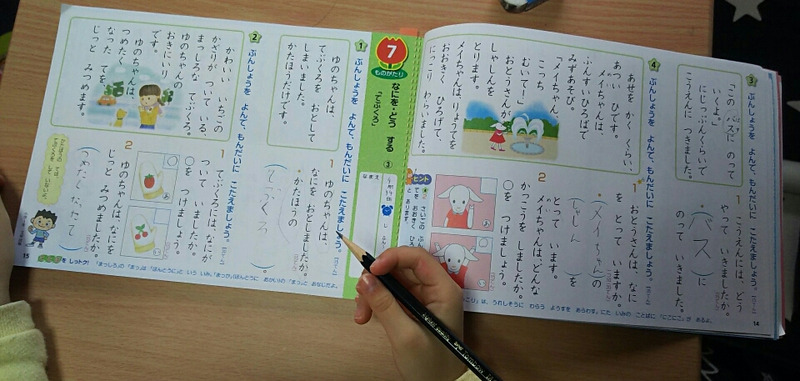 3
ぶんしょうを よんで、もんだいに こたえましょう。
「この バスに のって
いくよ。」
にじっぷんくらいで
こうえんに つきました。
1 こうえんには、どう
やって いきましたか。
バス に
のって いきました。
4
ぶんしょうを よんで、もんだいに こたえましょう。
あせを かく くらい、
あつい ひです。
メイちゃんは、
ふんすいひろばで
みずあそび。
「メイちゃん、
こっち
むいてー！」
おとうさんが
しゃしんを
とります。
メイちゃんは、りょうてを
おおきく ひろげて、
にっこり わらいました。
1 おとうさんは、なにを
とって いますか。
メイちゃん の
しゃしん を
とって います。
2 メイちゃんは、どんな
かっこうを しましたか。
○を つけましょう。
ヒント
14
7
ものがたり
なにを・どう する
「てぶくろ」
3
1
ぶんしょうを よんで、もんだいに こたえましょう。
ゆのちゃんは、
てぶくろを おとして
しまいました。
かたほうだけです。
1 ゆのちゃんは、
なにを おとしましたか。
かたほうの
てぶくろ 。
2
ぶんしょうを よんで、もんだいに こたえましょう。
かわいい いちごの
かざりが ついて いる、
まっしろな てぶくろ。
ゆのちゃんの
おきにいり
です。
ゆのちゃんは、
つめたく
なった てを、
じっと みつめます。
1 てぶくろには、なにが
ついて いましたか。
○を つけましょう。
2 ゆのちゃんは、なにを
じっと みつめましたか。
つめたくなった て
15